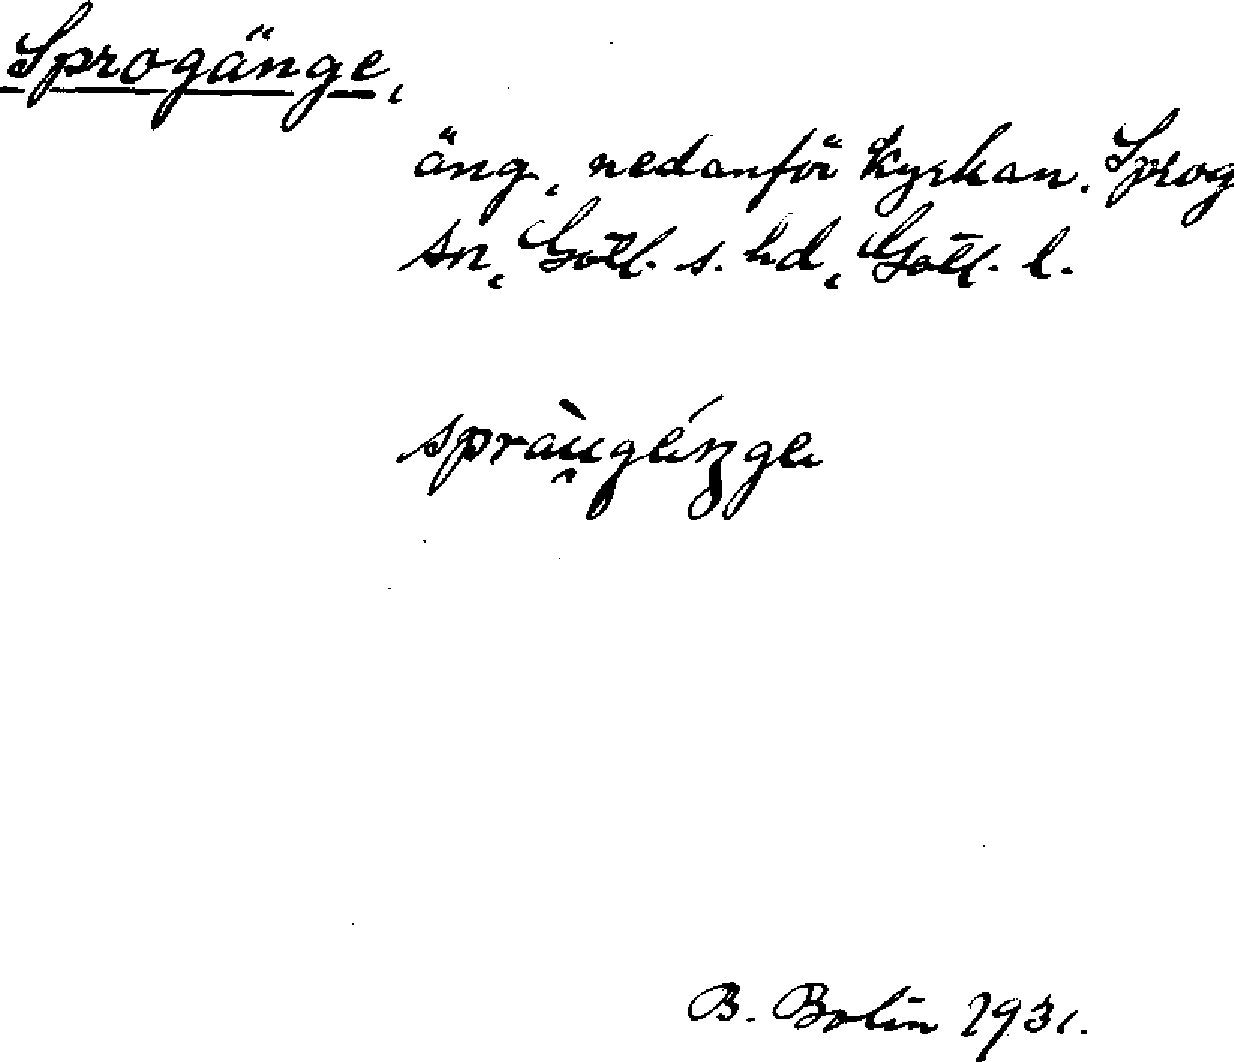 Sprogänge,
äng, nedanför kyrkan. Sprog
sn, Gotl. s. hd, Gotl. l.
spràu̯géŋge
B. Bolin 1931.